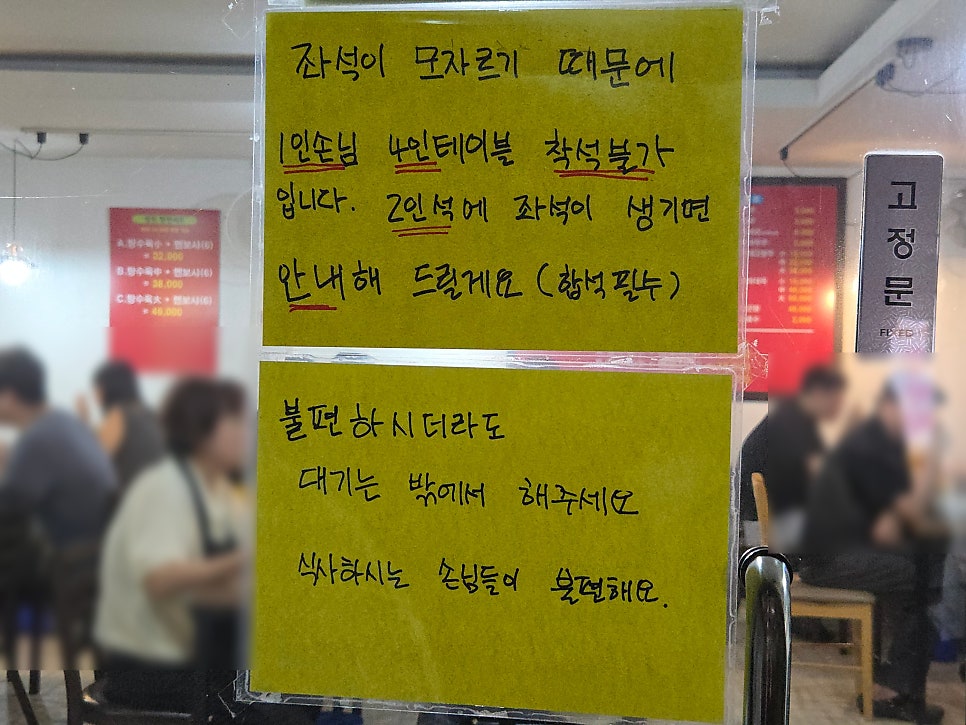 좌석이 모자르기 때문에
1인손님 4인테이블 착석불가
입니다. 2인석에 좌석이 생기면
안내해 드릴게요 (합석필수)
불편하시더라도
대기는 밖에서 해주세요
식사하시는 손님들이 불편해요.
고정문
FIXED
A.탕수육小 + 멘보샤(6)
= 32,000
B.탕수육中 + 멘보샤(6)
= 38,000
C.탕수육大 + 멘보샤(6)
= 46,000